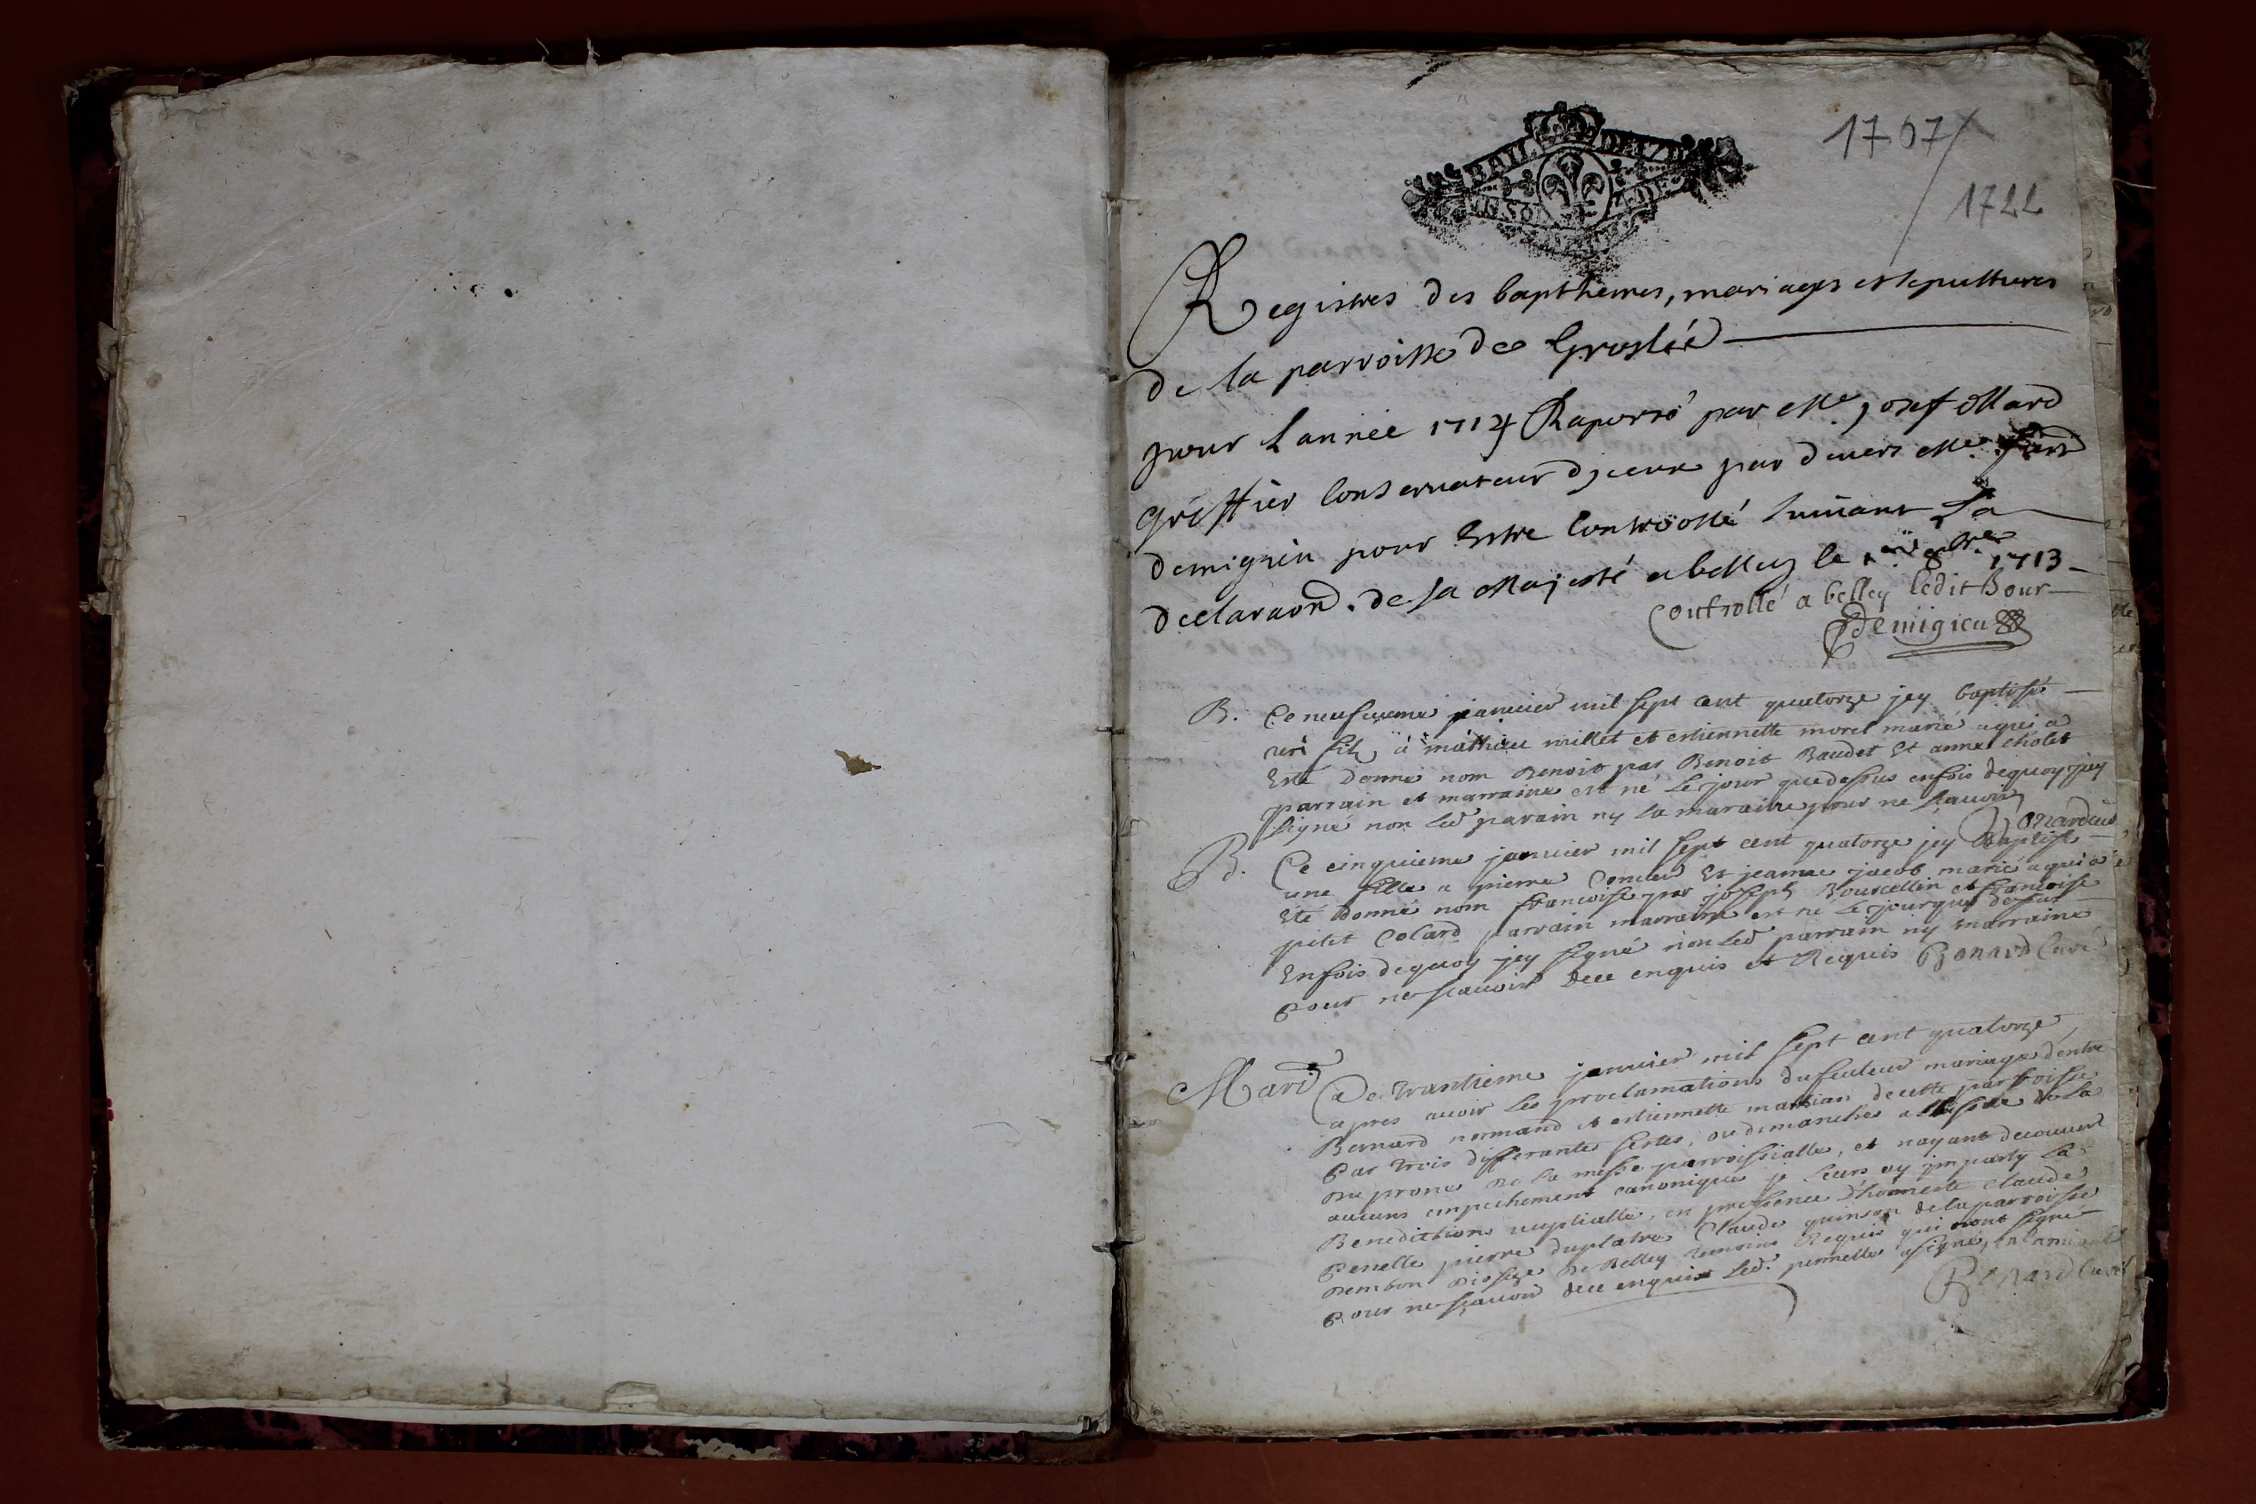 1707/
1722
Registres des bapthemes, mariages et sepultures
de la parroisse de Groslée
pour Lannée 1714 Raporté par Me. Josef Mard
Greffier Conservateur djceux par devers Me.
demigieu pour Estre Controollé suiuant La
declaraon. de sa Majesté a belley le 1er. 8bre 1713
Controllé a belley ledit Jour
Demigieu
B. Ce neufuieme januier mil sept cent quatorze jey baptisé
un filz a mathieu millet et estiennette morel marié aqui a
Esté donné nom Benoit par Benoit Baudet Et anne cholet
parrain et marraine est né Le jour que dessus enfois dequoy jey
signé non led parain ny la maraine pour ne scauoir
Bonard curé
B. Ce cinquieme januier mil sept cent quatorze jey Baptisé
une fille a pierre Et jeanne jacob marié aqui a
Eté donné nom francoise par joseph Bourcellin et francoise
petit Colard parrain marraine est né Le jour que dessus
Enfois dequoy jey signé non led parrain ny marraine
Pour ne scauoir dece enquis et Requis Bonard Curé
Mari
Ce trantieme januier mil sept cent quatorze
apres auoir les proclamations du futur mariage dentre
Bernard normand et estiennette martian decette parroisse
Par trois differantes festes, ou dimanches a lissue de la
du prone de la messe parroissialle, et nayant decouuert
aucuns empechement canonique je leurs ay jmparty La
Benediction nuptialle, en pressence dhonneste Claude
Penelle pierre duplatre Claude quinson de la parroisse
dembon diosese de Belley temoins Requis qui nont signé
Pour ne scauoir dece enquis Led. pennelle a signé,
Bonard Curé